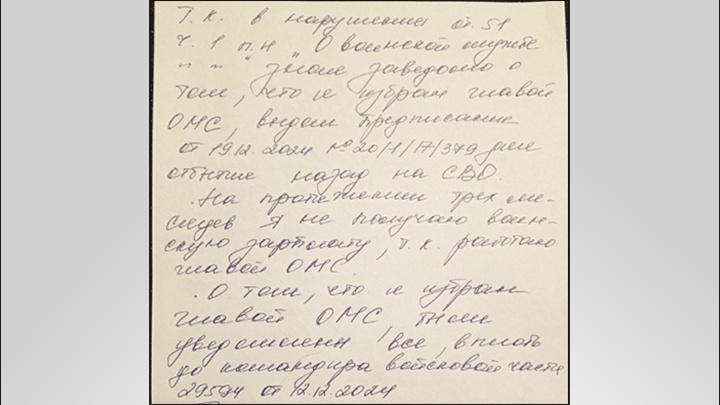 Т. к. в нарушении ст. 51
ч. 1 п. н „О воинской службе
" " " зная заведомо о
том, что я избран главой
ОМС, выдал предписание
от 19.12.2024 № 20/1/17/379 для
отбытие назад на СВО.
. На протяжении трех ме-
сяцев я не получаю воин-
скую зарплату, т. к. работаю
главой ОМС.
. О том, что я избран
главой ОМС, были
уведомлены все, вплоть
до командира войсковой части
29594 от 12.12.2024